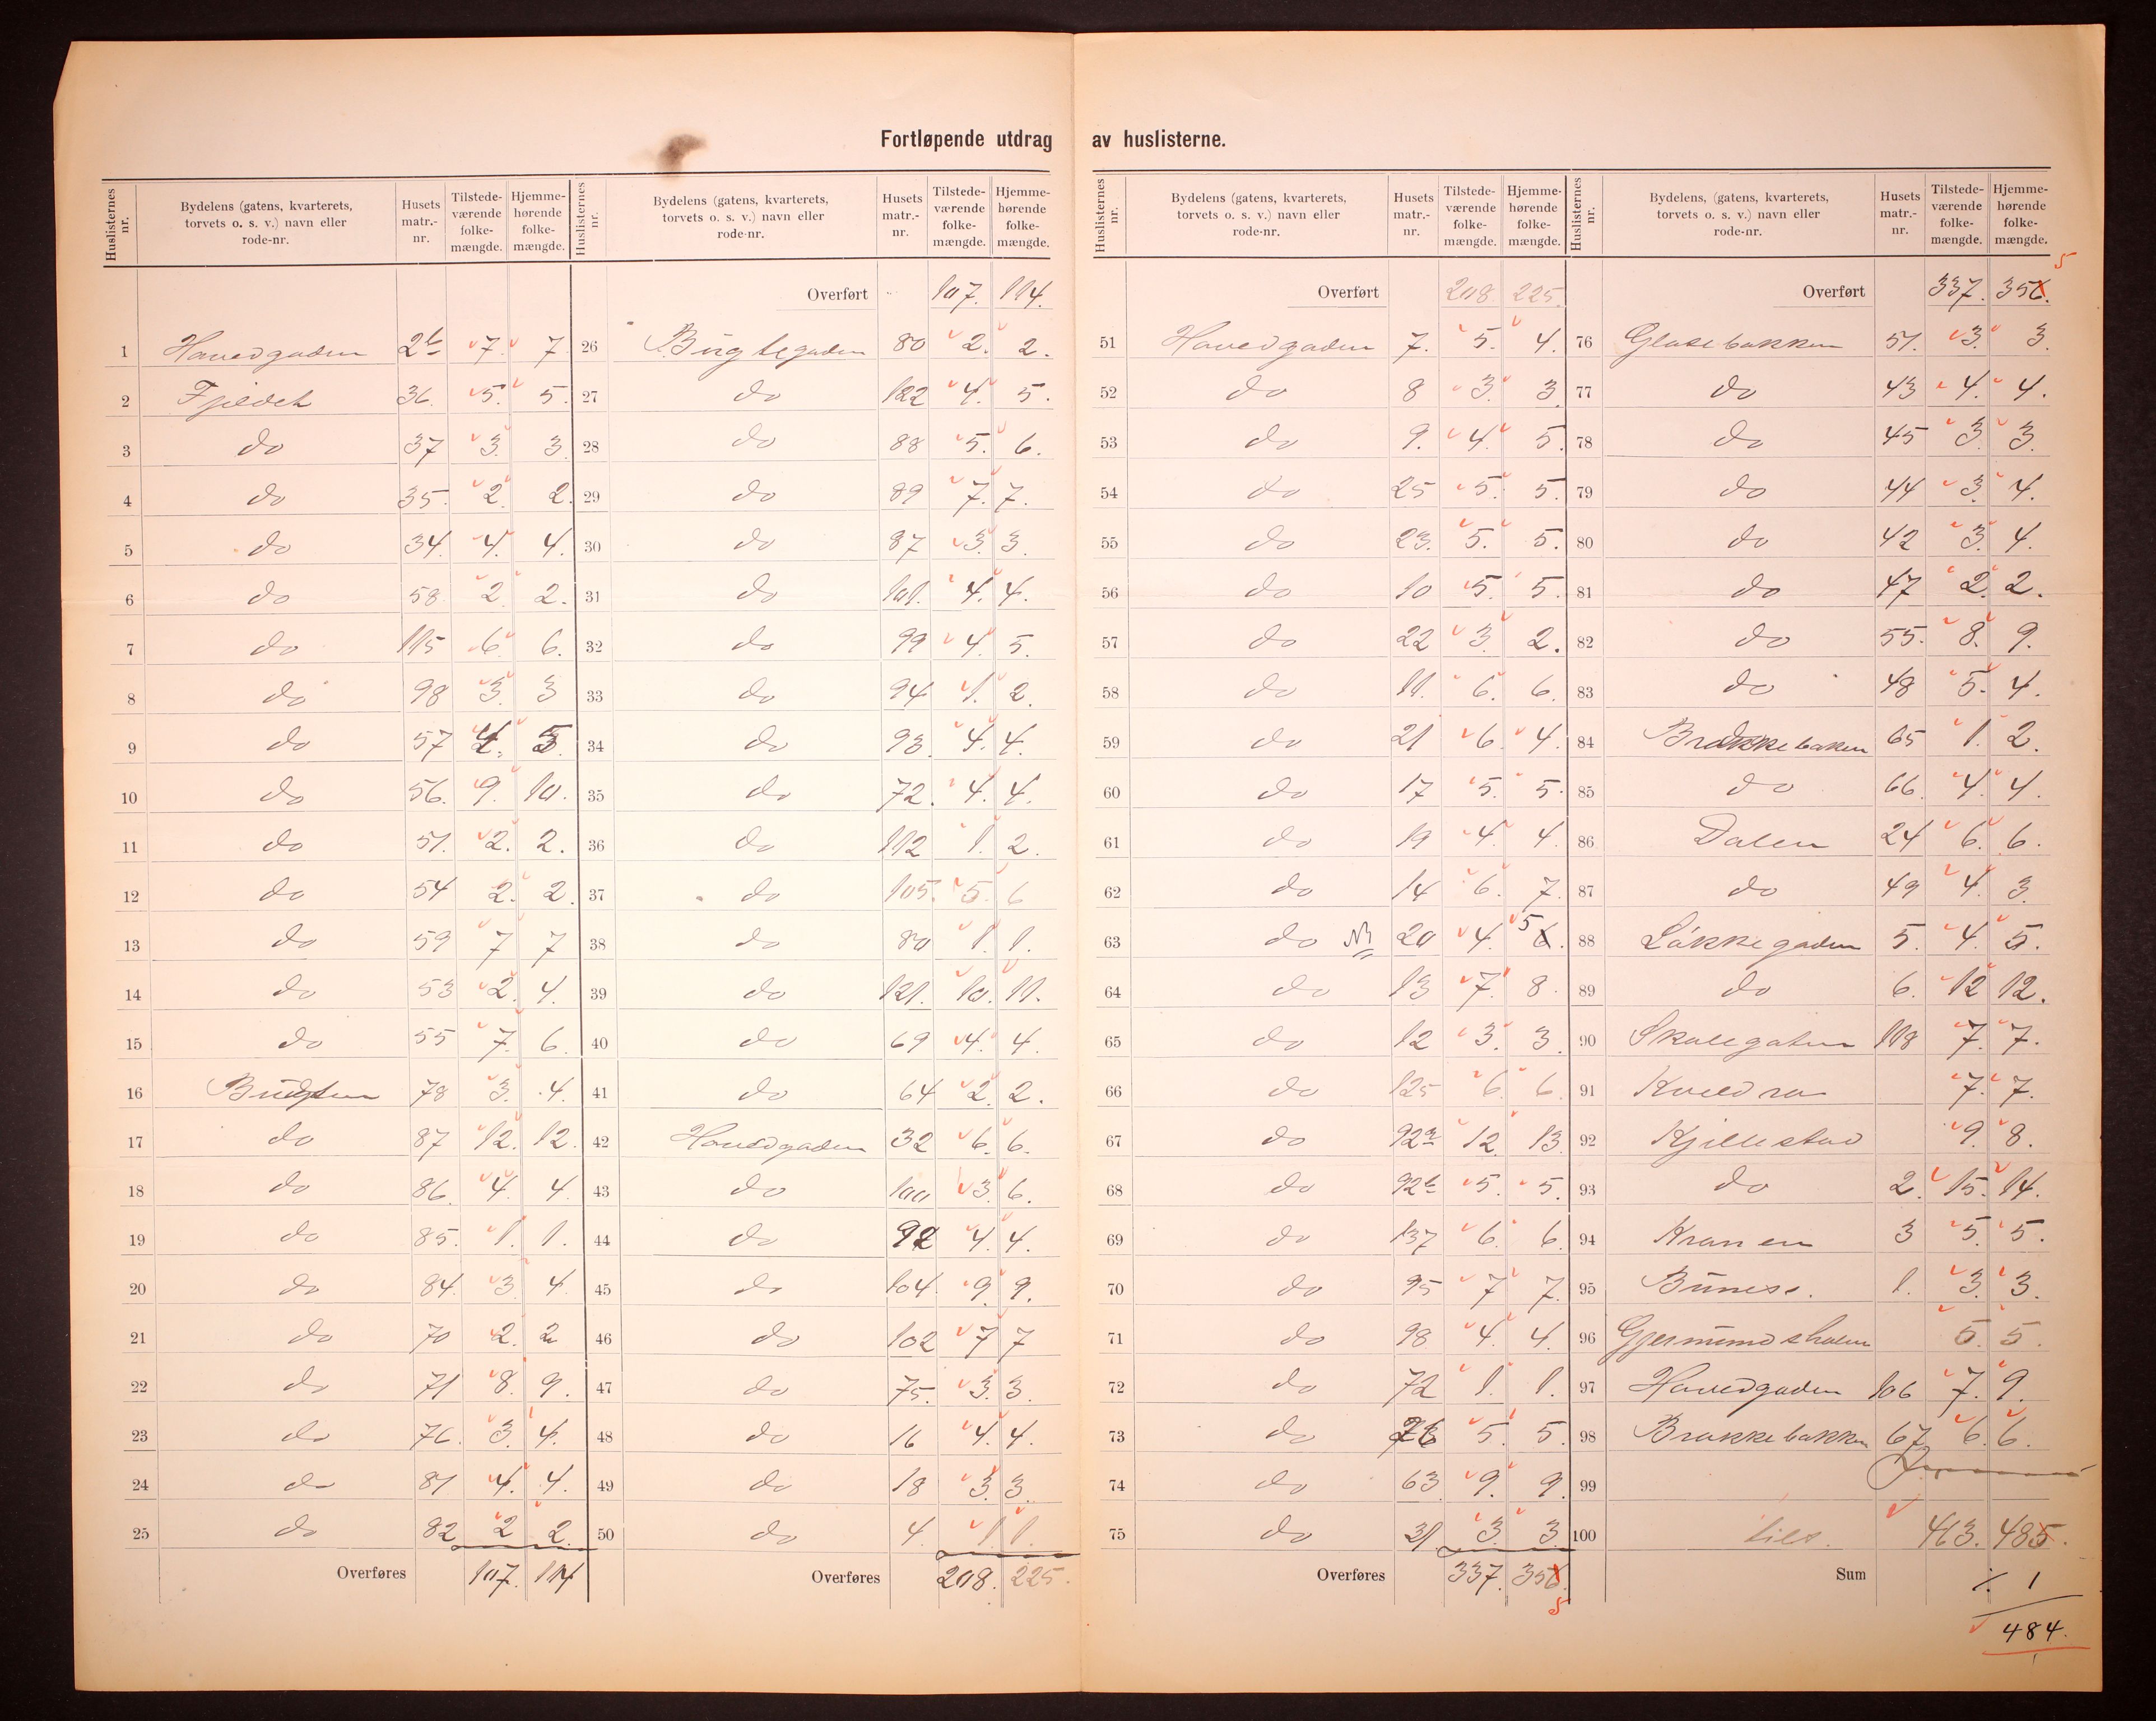 Fortløpende utdrag av huslisterne.
Huslisternes nr. | Bydelens (gatens, kvarterets, torvets o. s. v.) navn eller rode-nr. | Husets matr.-nr. | Tilstede-værende folke-mængde. | Hjemme-hørende folke-mængde.
1 Hovedgaden 2b 7. 7
2 Fjeldet 36. 5. 5.
3 do 37 3. 3
4 do 35. 2. 2.
5 do 34. 4. 4.
6 do 58. 2 2.
7 do 115 6. 6.
8 do 98 3. 3
9 do 57 4. 5.
10 do 56. 9. 10.
11 do 51. 2. 2.
12 do 54 2. 2.
13 do 59 7 7
14 do 53 2. 4.
15 do 55 7. 6.
16 Bugten 78 3. 4.
17 do 87 12. 12.
18 do 86. 4. 4
19 do 85. 1. 1.
20 do 84. 3 4
21 do 70 2. 2
22 do 71 8. 9.
23 do 76. 3. 4.
24 do 81 4. 4.
25 do 82 2 2.
Overføres 107. 114
Huslisternes nr. | Bydelens (gatens, kvarterets, torvets o. s. v.) navn eller rode-nr. | Husets matr.-nr. | Tilstede-værende folke-mængde. | Hjemme-hørende folke-mængde.
Overført 107. 114.
26 Bugtegaden 80 2. 2.
27 do 122 4. 5.
28 do 88 5. 6.
29 do 89 7. 7.
30 do 87 3. 3.
31 do 101. 4. 4.
32 do 99 4. 5.
33 do 94 1. 2.
34 do 93. 4. 4.
35 do 72. 4. 4.
36 do 112 1. 2.
37 do 105. 5. 6
38 do 80 1. 1.
39 do 121. 10. 11.
40 do 69 4. 4.
41 do 64 2. 2.
42 Hovedgaden 32 6. 6.
43 do 100 3. 6.
44 do 92 4. 4.
45 do 104 9. 9.
46 do 102 7 7
47 do 75. 3. 3.
48 do 16 4. 4.
49 do 18 3. 3.
50 do 4. 1. 1.
Overføres 208. 225.
Huslisternes nr. | Bydelens (gatens, kvarterets, torvets o. s. v.) navn eller rode-nr. | Husets matr.-nr. | Tilstede-værende folke-mængde. | Hjemme-hørende folke-mængde.
Overført 208. 225.
51 Hovedgaden 7. 5. 4.
52 do 8 3. 3.
53 do 9. 4. 5.
54 do 25 5. 5.
55 do 23. 5. 5.
56 do 10 5. 5.
57 do 22 3. 2.
58 do 11. 6. 6.
59 do 21 6. 4.
60 do 17 5. 5.
61 do 19 4. 4.
62 do 14 6. 7.
63 do 20 4. 5 6.
64 do 13 7. 8.
65 do 12 3. 3.
66 do 125 6. 6.
67 do 92a 12. 13.
68 do 92b 5. 5.
69 do 137 6. 6.
70 do 95 7 7.
71 do 98 4. 4.
72 do 72 1. 1.
73 do 5. 5.
74 do 63 9. 9.
75 do 31. 3. 3.
Overføres 337. 356.
5
Huslisternes nr. | Bydelens, (gatens, kvarterets, torvets o. s. v.) navn eller rode-nr. | Husets matr.-nr. | Tilstede-værende folke-mængde. | Hjemme-hørende folke-mængde.
5
Overført 337. 356.
76 Glasebakken 51. 3. 3.
77 do 43 4. 4.
78 do 45 3. 3.
79 do 44 3. 4.
80 do 42 3. 4.
81 do 47 2. 2.
82 do 55. 8. 9.
83 do 48 5. 4.
84 Brakkebaken 65 1. 2.
85 do 66. 4. 4.
86 Dalen 24 6. 6.
87 do 49 4. 3.
88 Løkkegaden 5. 4. 5.
89 do 6. 12 12.
90 Skolegaten 118 7. 7.
91 7. 7.
92 Kjillestad 9. 8.
93 do 2. 15. 14.
94 Kranen 3 5. 5.
95 1. 3. 3.
96 Gjermundsholmen 5. 5.
97 Hovedgaden 106 7. 9.
98 Brakkebakken 67 6. 6.
99
100 tils. 463. 485.
Sum ÷ 1
484.